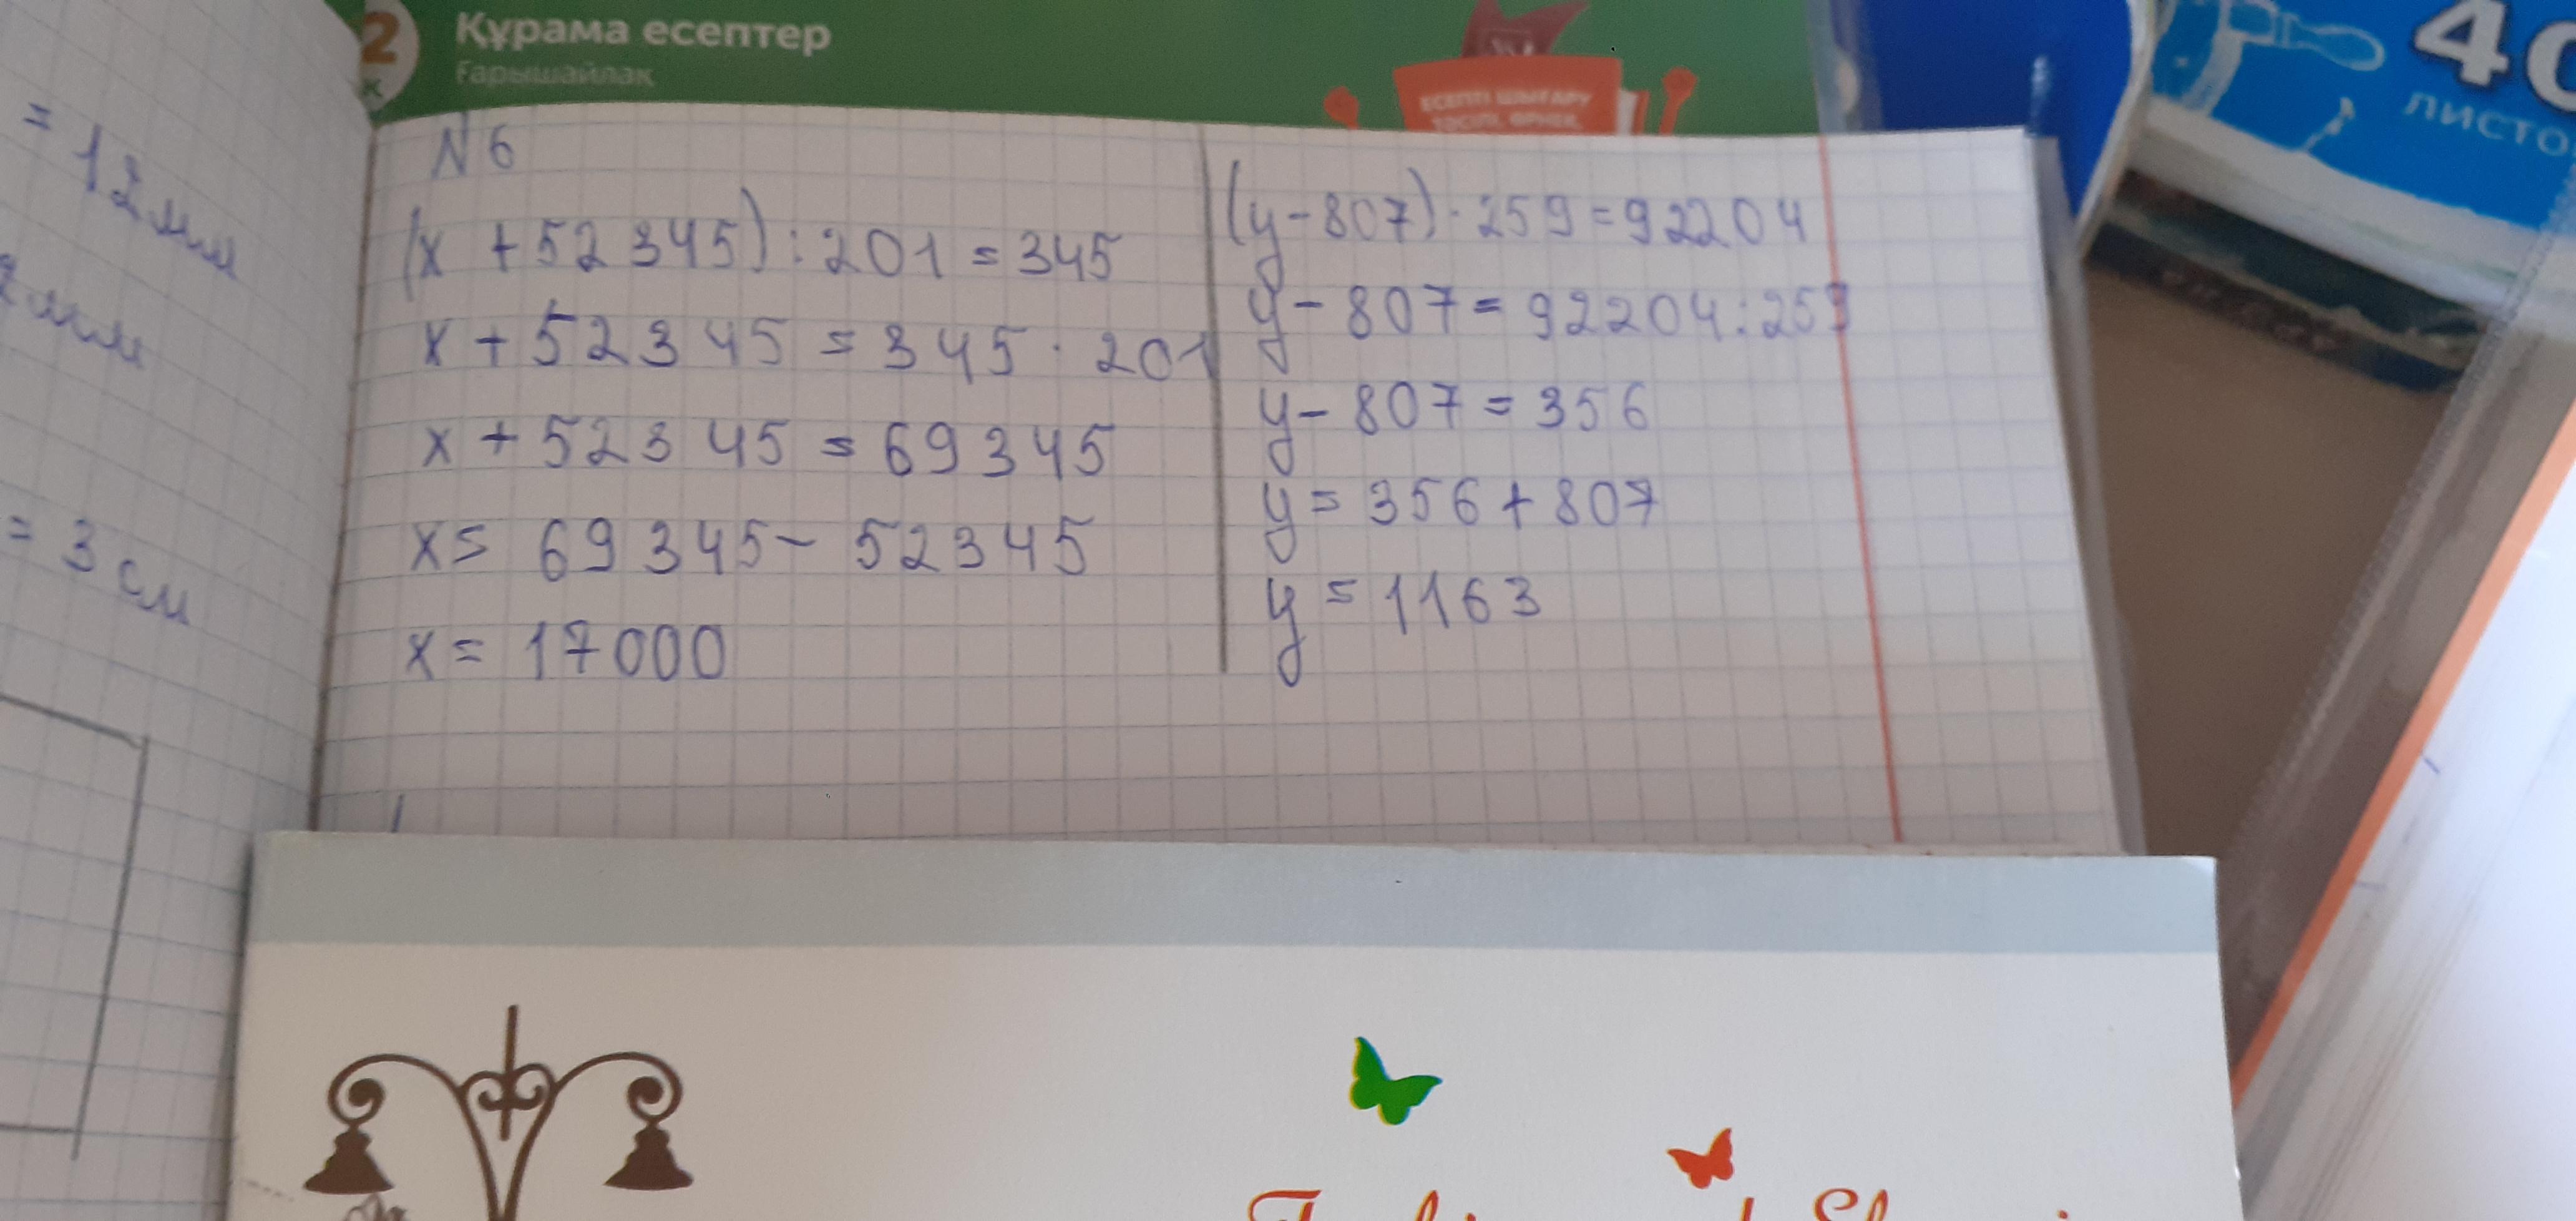 Құрама есептер
Ғарышайлақ
ЕСЕПТІ ШЫҒАРУ
ТӘСІЛІ, ӨРНЕК,
40
ЛИСТО
= 12 мм
мм
= 3 см
N 6
(x + 52 345) : 201 = 345
x + 52 345 = 345 · 201
x + 52 345 = 69345
x = 69 345 - 52345
x = 17 000
(y - 807) · 259 = 92204
y - 807 = 92204 : 259
y - 807 = 356
y = 356 + 807
y = 1163